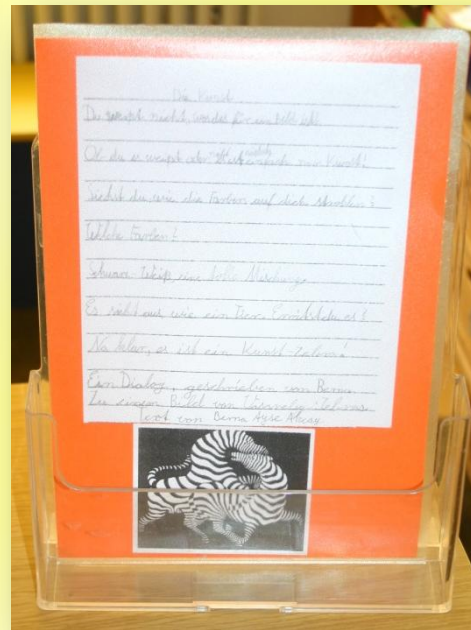 Die Kunst
Du weißt nicht, was das für ein Bild ist!
Ob du es weißt oder nicht, einfach nur Kunst!
Siehst du wie die Farben auf dich strahlen?
Welche Farben?
Schwarz Weiß, eine tolle Mischung.
Es sieht aus wie ein Tier. Ermittelst du es?
Na klar, es ist ein Kunst-Zebra!
Ein Dialog, geschrieben von Berna
Zu einem Bild von
Text von Berna Ayse